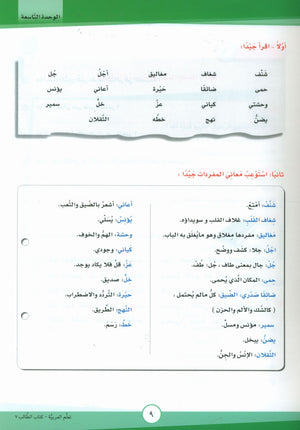 الوحدة التاسعة
أولاً - اقرأ جيدًا:
شنّف شغاف مغاليق أجلُ جُل
حمى ضائقًا حَيْرة أعاني يؤنس
وحشتي كياني عزّ خلّ سمير
يضنُّ نهج خطه الثقلان
ثانيًا: استوعب معاني المفردات جيدًا:
شنّف: أمتع.
شغاف القلب: غلاف القلب و سويداؤه.
مغاليق: مفردها مغلاق وهو مايُغلق به الباب.
أجلُ: جلا: كشف ووضح.
جُلْ: جال بمعنى طاف، جُل: طُف.
حمى: المكان الذي يُحمى.
ضائقًا صدري: الضيق: كلّ مالم يُحتمل ،
( كالشك والألم والحزن )
سمير: مؤنس ومسلّ.
يضنّ: يبخل.
الثقلان: الإنْس والجنّ.
أعاني: أشعرُ بالضيق والتّعب.
يُؤنسُ: يُسلّي.
وحشة: الهمّ والخوف.
كياني: وجودي.
عزّ: قلّ فلا يكاد يوجد.
خلّ: صديق.
حيرة: التردُّد والاضطراب.
النّهج: الطريق.
خطّ: رَسَمَ.
٩
تعلّم العربيّة - كتاب الطّالب ٧